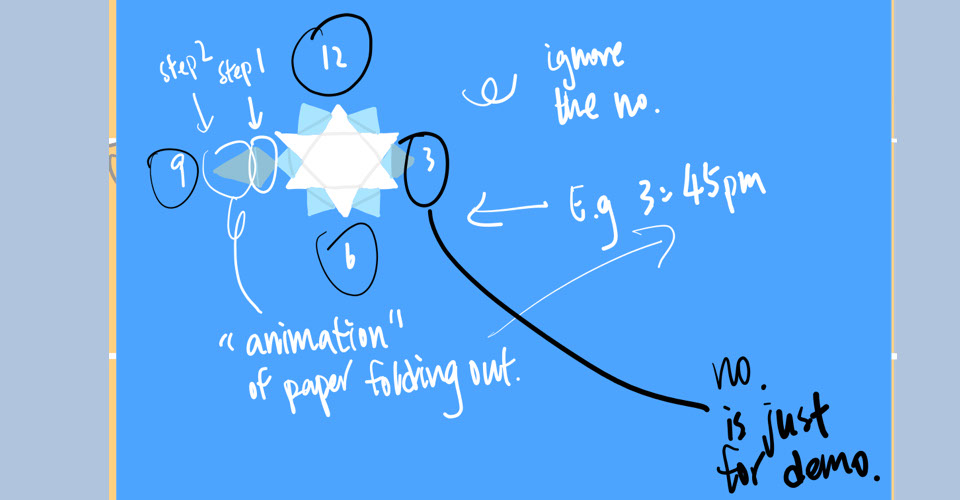 12
step2
step1
ignore
the no.
9
3
E.g 3:45pm
6
"animation"
of paper folding out.
no.
is just
for demo.